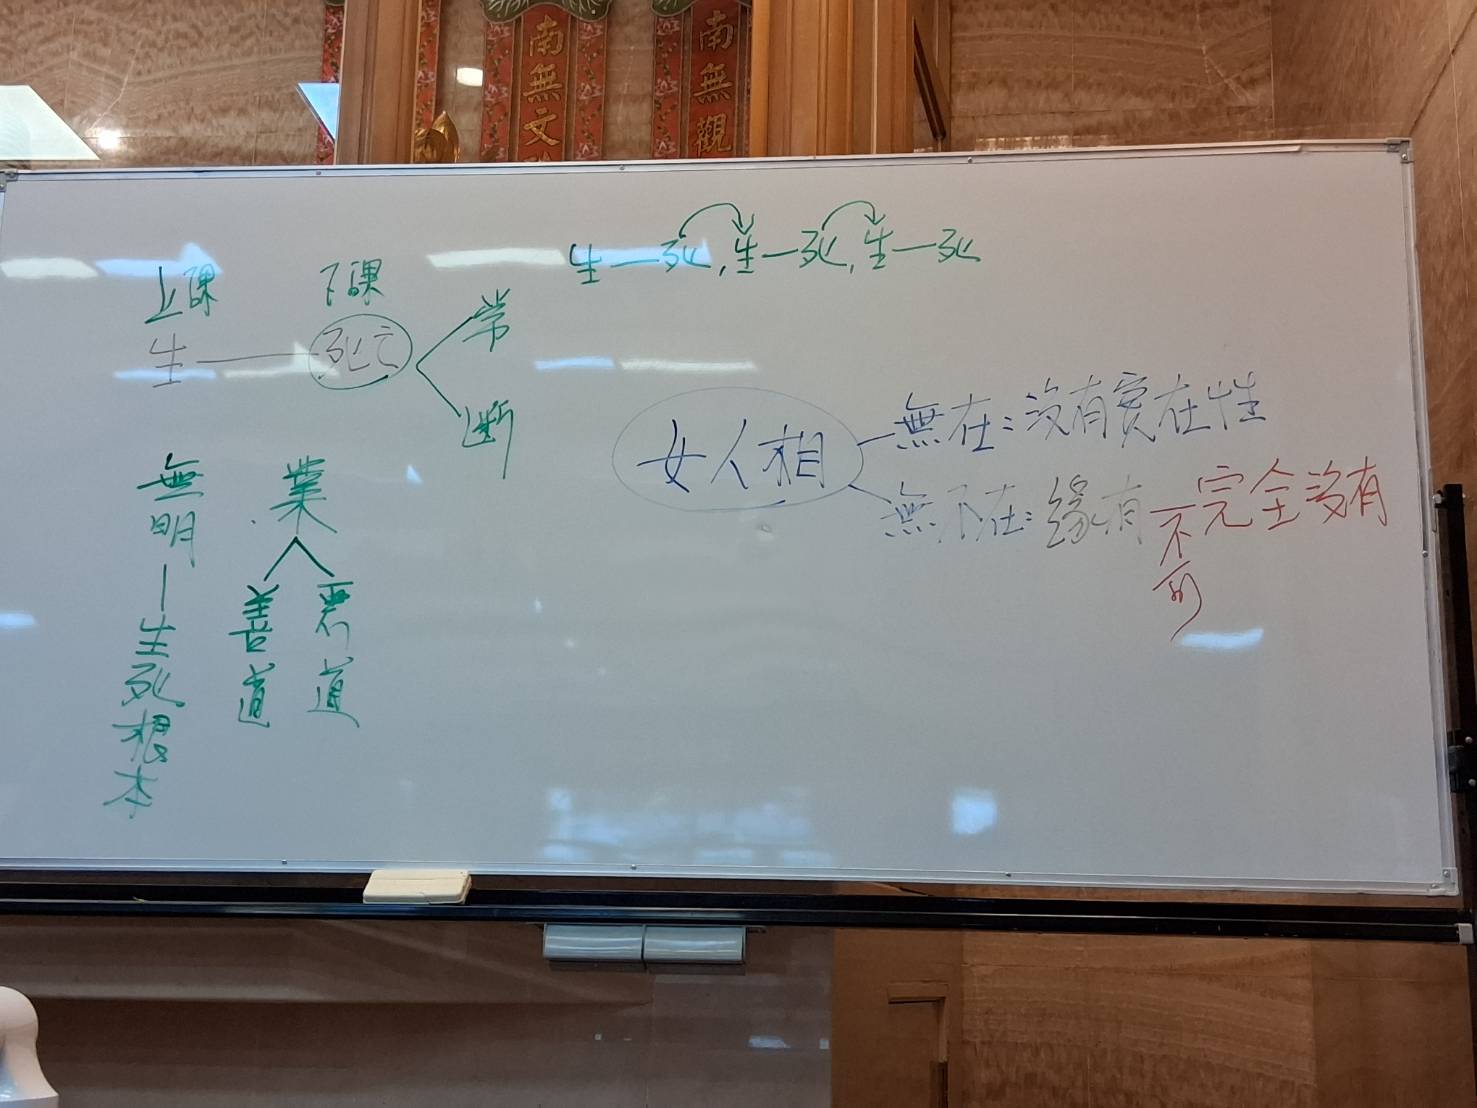 南無文
南無觀
生—死,生—死,生—死
上課 下課
生——死亡
常
断
無明—生死根本
業
善道
惡道
女人相
無在:沒有實在性
無不在:緣有—完全沒有
不可